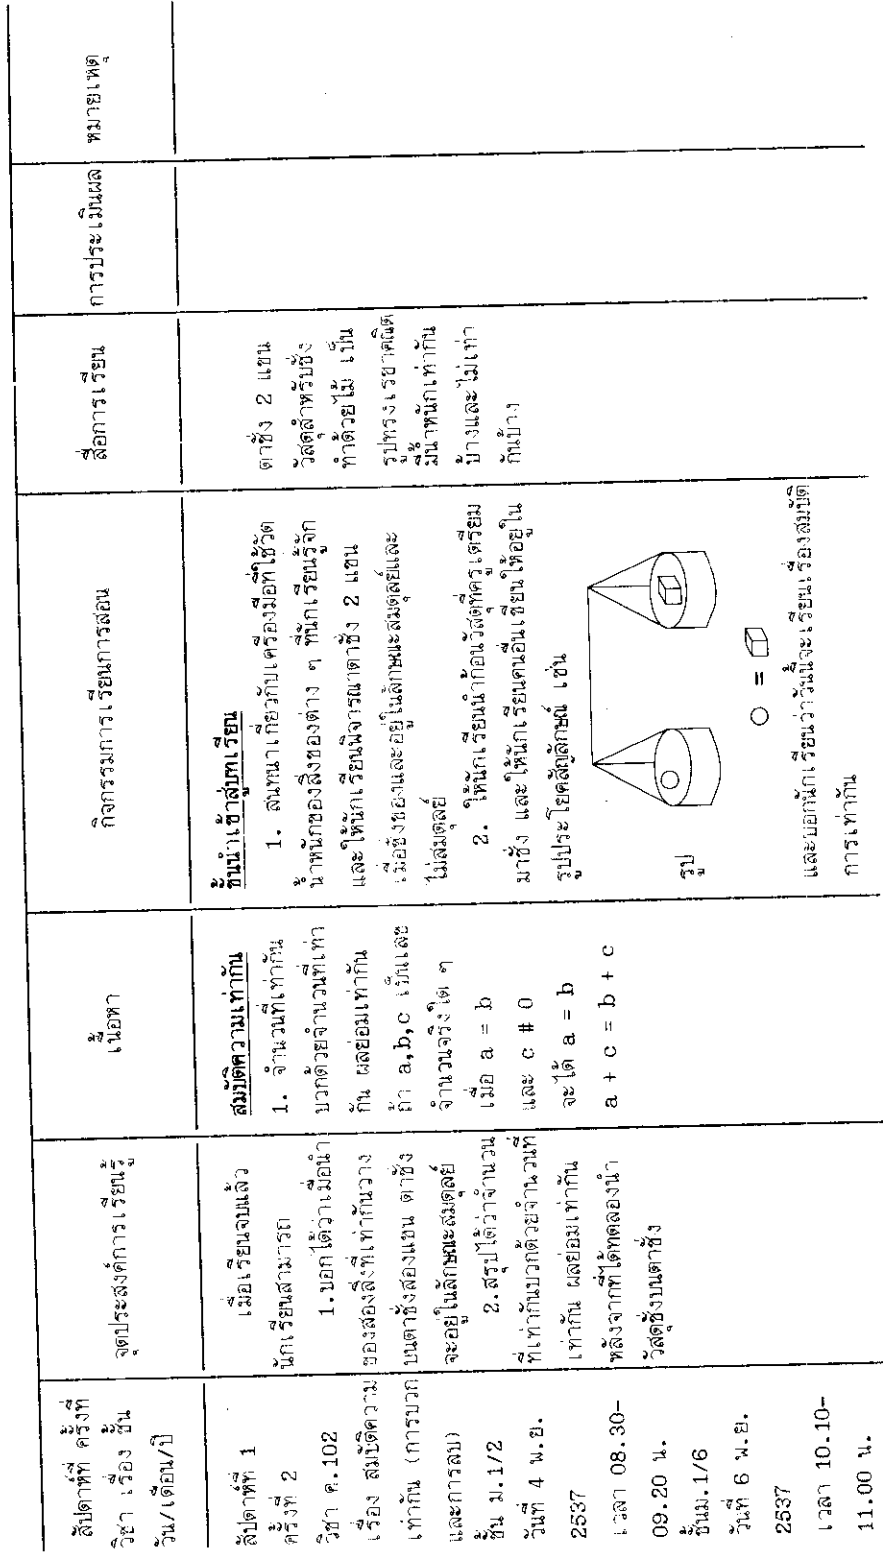 สัปดาห์ที่ ครั้งที่
วิชา เรื่อง ชั้น
วัน/เดือน/ปี
จุดประสงค์การเรียนรู้
เนื้อหา
กิจกรรมการเรียนการสอน
สื่อการเรียน
การประเมินผล
หมายเหตุ
สัปดาห์ที่ 1
ครั้งที่ 2
วิชา ค.102
เรื่อง สมบัติความ
เท่ากัน (การบวก
และการลบ)
ชั้น ม.1/2
วันที่ 4 พ.ย.
2537
เวลา 08.30-
09.20 น.
ชั้นม.1/6
วันที่ 6 พ.ย.
2537
เวลา 10.10-
11.00 น.
เมื่อเรียนจบแล้ว
นักเรียนสามารถ
1.บอกได้ว่าเมื่อนำ
ของสองสิ่งที่เท่ากันวาง
บนตาชั่งสองแขน ตาชั่ง
จะอยู่ในลักษณะสมดุลย์
2.สรุปได้ว่าจำนวน
ที่เท่ากันบวกด้วยจำนวนที่
เท่ากัน ผลย่อมเท่ากัน
หลังจากที่ได้ทดลองนำ
วัสดุชั่งบนตาชั่ง
สมบัติความเท่ากัน
1. จำนวนที่เท่ากัน
บวกด้วยจำนวนที่เท่า
กัน ผลย่อมเท่ากัน
ถ้า a,b,c เป็นเลข
จำนวนจริงใด ๆ
เมื่อ a = b
และ c # 0
จะได้ a = b
a + c = b + c
ขั้นนำเข้าสู่บทเรียน
1. สนทนาเกี่ยวกับเครื่องมือที่ใช้วัด
น้ำหนักของสิ่งของต่าง ๆ ที่นักเรียนรู้จัก
และให้นักเรียนพิจารณาตาชั่ง 2 แขน
เมื่อชั่งของและอยู่ในลักษณะสมดุลย์และ
ไม่สมดุลย์
2. ให้นักเรียนนำก้อนวัสดุที่ครูเตรียม
มาชั่ง และให้นักเรียนคนอื่นเขียนให้อยู่ใน
รูปประโยคสัญลักษณ์ เช่น
รูป
=
และบอกนักเรียนว่าวันนี้จะเรียนเรื่องสมบัติ
การเท่ากัน
ตาชั่ง 2 แขน
วัสดุสำหรับชั่ง
ทำด้วยไม้ เป็น
รูปทรงเรขาคณิต
มีน้ำหนักเท่ากัน
บ้างและไม่เท่า
กันบ้าง